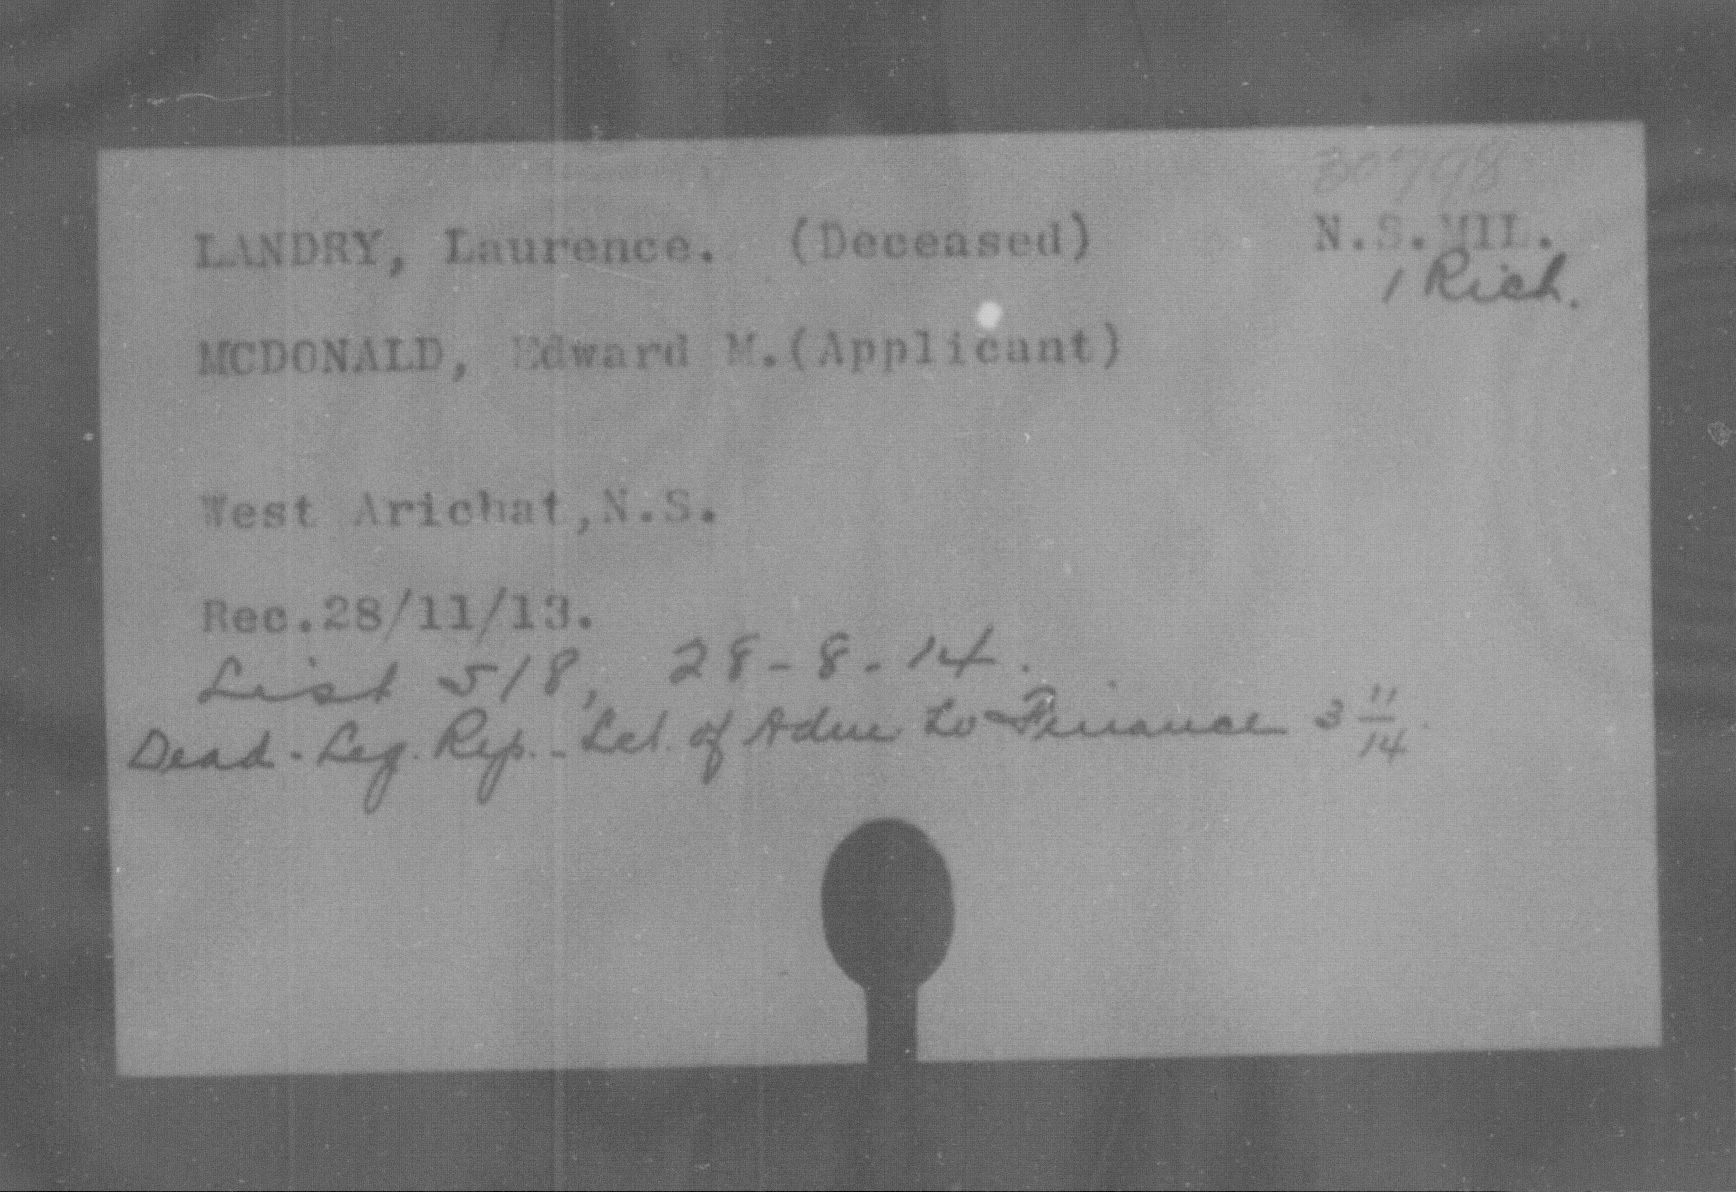 30798
LANDRY, Laurence. (Deceased) N.S.MIL.
1 Rich.
MCDONALD, Edward M.(Applicant)
West Arichat,N.S.
Rec.28/11/13.
List 518, 28-8-14.
Dead. Leg. Rep. - Let. of Adm to Finance 3 11/14.